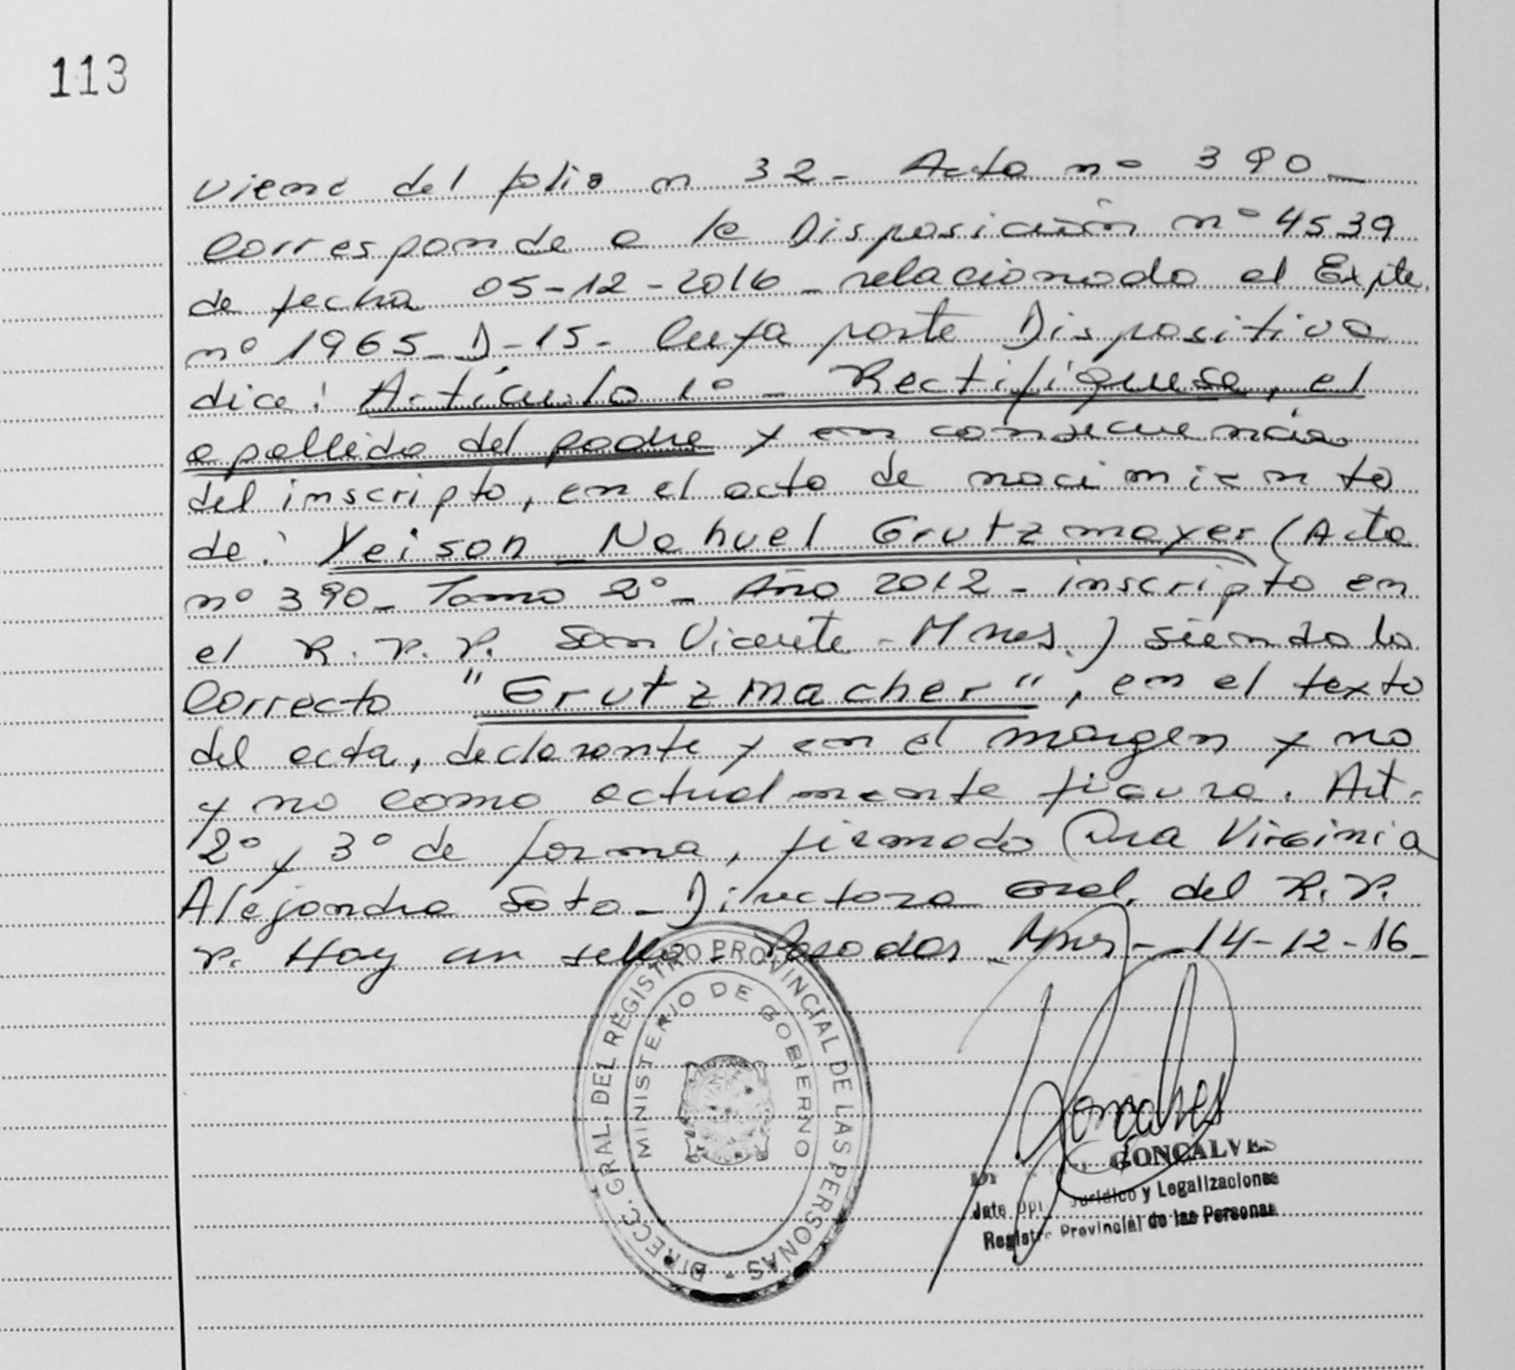 113
viene del folio n 32 - Acta nº 390 -
Corresponde a la Disposición nº 4539
de fecha 05-12-2016 - relacionado al Expte.
nº 1965 - D - 15 - Cuya parte Dispositiva
dice: Artículo 1º - Rectifíquese, el
apellido del padre y en consecuencia
del inscripto, en el acta de nacimiento
de: Yeison Nahuel Grutzmayer (Acta
nº 390 - Tomo 2º - Año 2012 - inscripto en
el R. P. P. San Vicente - Mnes.) siendo lo
Correcto "Grutzmacher", en el texto
del acta, declarante y en el margen y no
y no como actualmente figura. Art.
2º y 3º de forma, firmado Dra Virginia
Alejandra Soto - Directora Gral. del R. P.
P. Hay un sello - Posadas Mnes - 14-12-16 -
DIRECC. GRAL. DEL REGISTRO PROVINCIAL DE LAS PERSONAS -
MINISTERIO DE GOBIERNO
Goncalves
GONCALVES
Jefe Dpt. Jurídico y Legalizaciones
Registro Provincial de las Personas